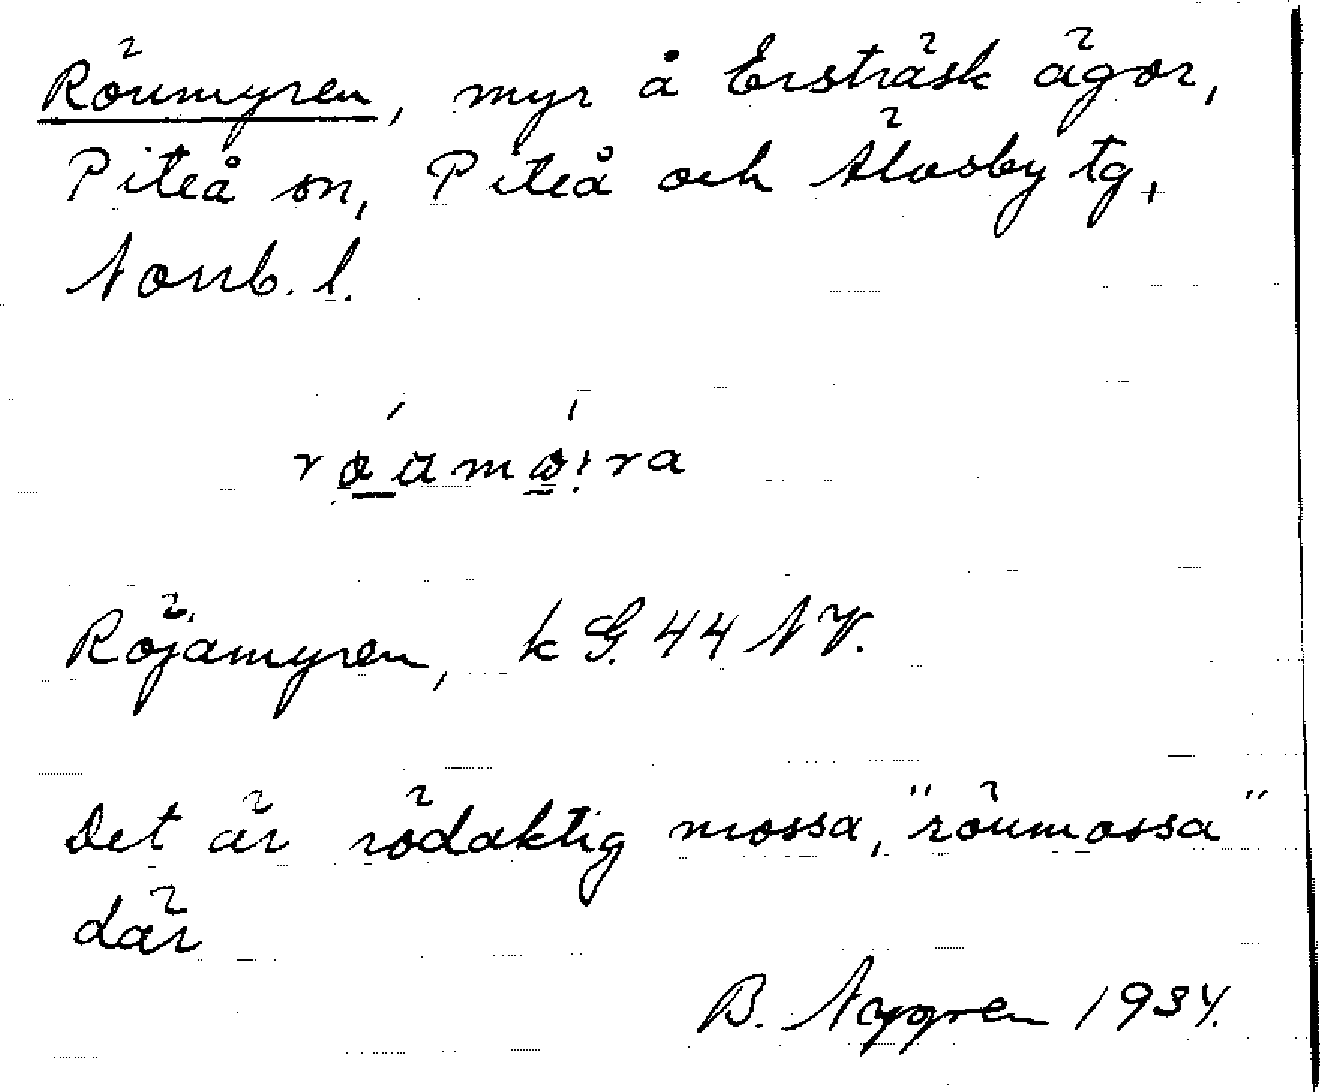 Röumyren, myr å Ersträsk ägor,
Piteå sn, Piteå och Älvsby tg,
Norrb. l.
Röjamyren, k G. 44 NV.
Det är rödaktig mossa, "röumossa"
där
B. Nygren 1934.